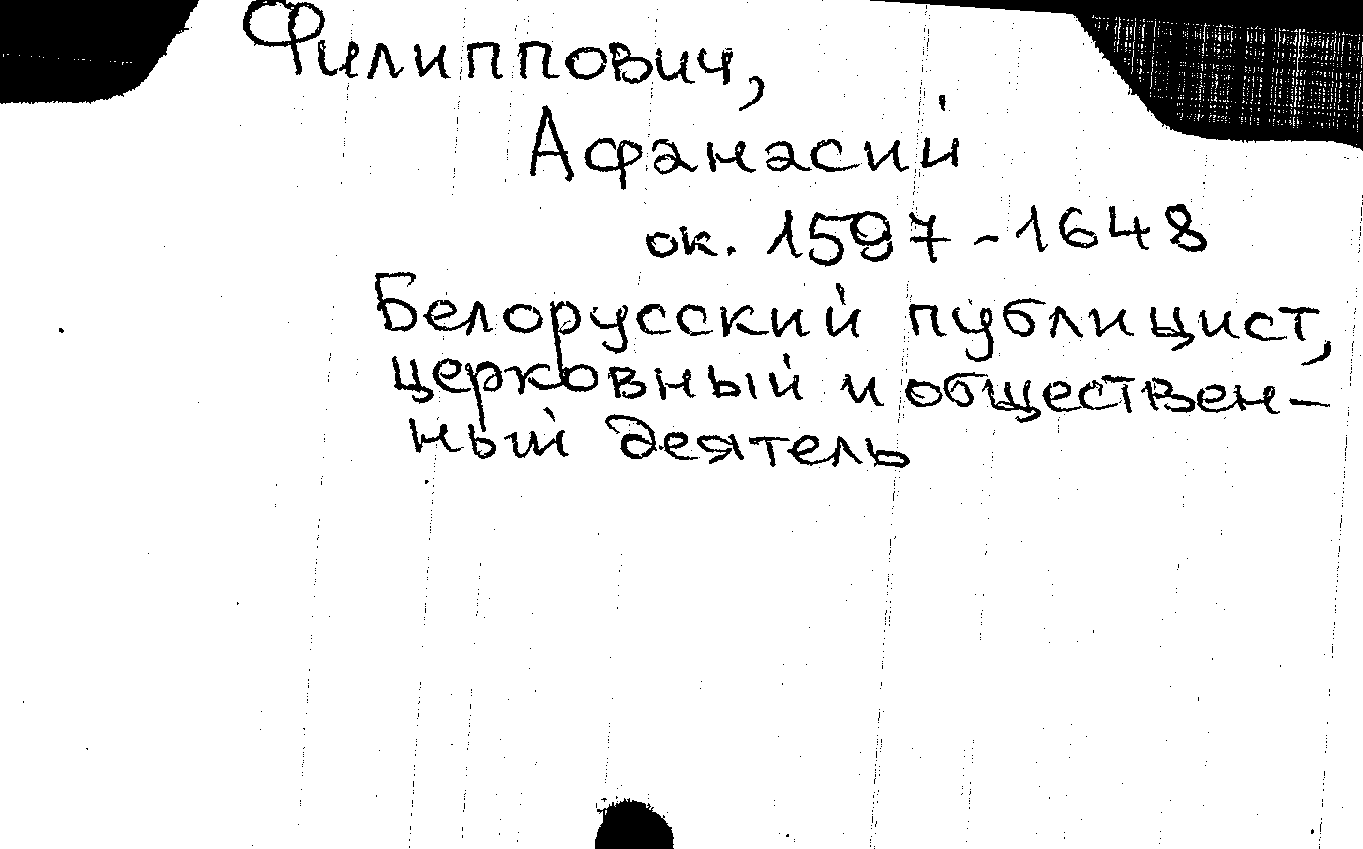 Филиппович,
Афанасий
ок. 1597-1648
Белорусский публицист,
церковный и обществен-
ный деятель